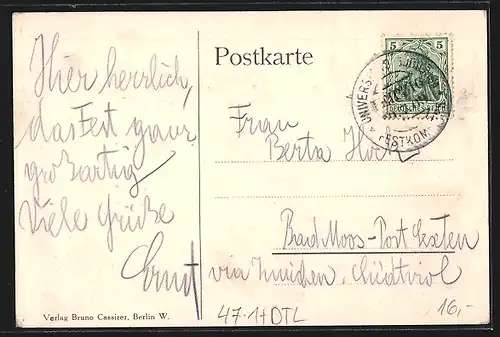 Hier herrlich,
das Fest ganz
großartig
Viele Grüße
Ernst
Verlag Bruno Cassirer, Berlin W.
Postkarte
5 5
DEUTSCHES REICH
FESTKOM
Frau
Berta
Bad Moos - Post Sexten
via Innichen, Südtirol
47.1+DTL
16,-